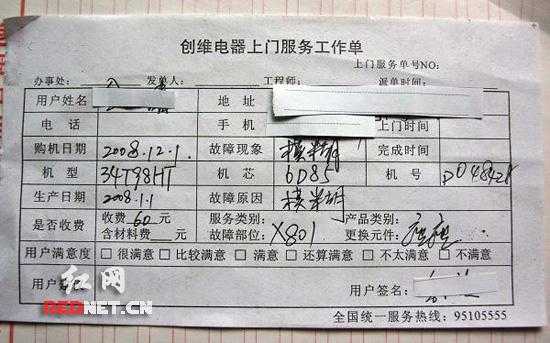 创维电器上门服务工作单
上门服务单号NO:
办事处: 发单人: 工程师: 派单时间:
用户姓名 地址
电话 手机 上门时间
购机日期 2008.12.1. 故障现象 模糊 完成时间
机型 34T98HT 机芯 6D85 机号
生产日期 2008.1.1 故障原因 模糊
是否收费 收费 60 元 服务类别: 产品类别:
含材料费 元 故障部位: X801 更换元件:
用户满意度 □很满意 □比较满意 □满意 □还算满意 □不太满意 □不满意
用户
用户签名:
红网
REDNET.CN
全国统一服务热线: 95105555